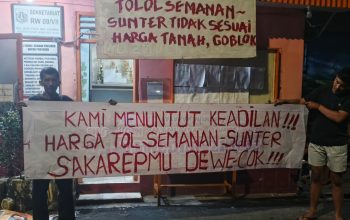 TOLOL SEMANAN~
SUNTER TIDAK SESUAI
HARGA TANAH, GOBLOK
SEKRETARIAT
RW 09/VII
KAMI MENUNTUT KEADILAN!!!
HARGA TOL SEMANAN-SUNTER
SAKAREPMU DEWE COK!!!